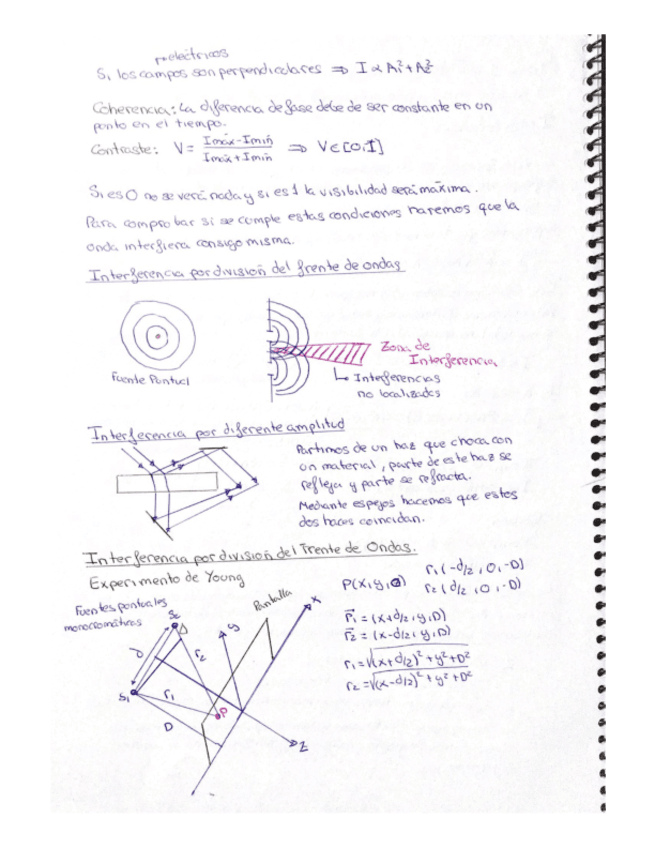 eléctricos
Si los campos son perpendiculares ⇒ I ∝ A₁²+A₂²
Coherencia: La diferencia de fase debe de ser constante en un
punto en el tiempo.
Contraste: V = (Imáx-Imín)/(Imáx+Imín) ⇒ V∈[0,1]
Si es 0 no se verá nada y si es 1 la visibilidad será máxima.
Para comprobar si se cumple estas condiciones haremos que la
onda interfiera consigo misma.
Interferencia por división del frente de ondas
Fuente Puntual
Zona de
Interferencia
↳ Interferencias
no localizadas
Interferencia por diferente amplitud
Partimos de un haz que choca con
un material, parte de este haz se
refleja y parte se refracta.
Mediante espejos hacemos que estos
dos haces coincidan.
Interferencia por división del Frente de Ondas.
Experimento de Young
Fuentes puntuales
monocromáticas
S₂
Δ
d
r₂
S₁
r₁
D
P
y
Pantalla
x
z
P(x,y,0)
r₁(-d/2,0,-D)
r₂(d/2,0,-D)
r⃗₁ = (x+d/2,y,D)
r⃗₂ = (x-d/2,y,D)
r₁=√((x+d/2)²+y²+D²)
r₂=√((x-d/2)²+y²+D²)